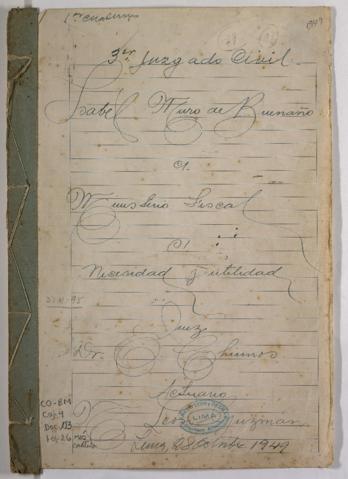 1er Cuaderno
1949
3er Juzgado Civil
Isabel Muro de Buenaño
a.
Ministerio Fiscal
S/
Necesidad y utilidad
Juez
Dr. Chumos
Actuario
LIMA
Guzman
Lima, 28 Octubre 1949
CO-BM
Caj. 4
Doc. 113